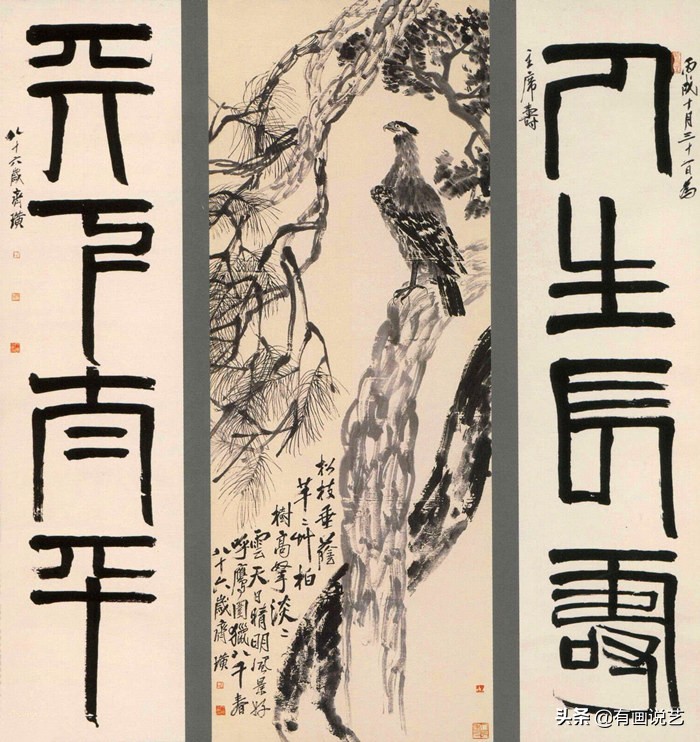 丙戌十月三十一日為
人生長壽
主席壽
松枝垂蔭
芊〻艸柏
樹高擎淡〻
雲天日晴明風景好
呼鷹圍獵八千春
八十六歲齊璜
天下太平
八十六歲齊璜
头条 @有画说艺